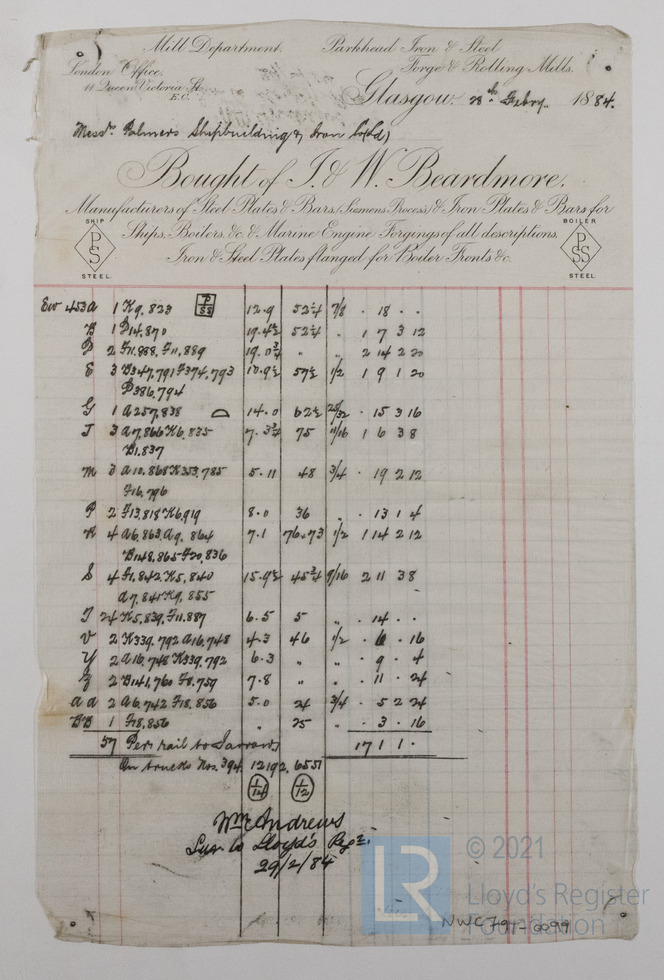 Mill Department. Parkhead Iron & Steel
London Office. Forge & Rolling Mills.
11 Queen Victoria St.
E.C.
Glasgow, 28th Feby. 1884.
Messrs. Palmers Shipbuilding & Iron Co (Ld)
Bought of I. & W. Beardmore.
Manufacturers of Steel Plates & Bars, (Siemens Process) & Iron Plates & Bars for
Ships, Boilers, &c. & Marine Engine Forgings of all descriptions,
Iron & Steel Plates flanged for Boiler Fronts &c.
SHIP PS STEEL.
BOILER PSS STEEL.
453 A 1 K9.823 P/SS 12.9 52 1/4 7/8 . 18 . .
B 1 P14.870 19.4½ 52 1/4 " 1 7 3 12
D 2 F11.888. F11.889 19.0 3/4 " " 2 14 2 20
E 3 B347.791 F374.793 10.9½ 57½ 1/2 1 9 1 20
P386.794
G 1 A257.838 14.0 62½ 25/32 . 15 3 16
J 3 A7.866 K6.835 7.3 3/4 75 11/16 1 6 3 8
B1.837
M 3 A10.868 K353.785 5.11 48 3/4 . 19 2 12
F16.796
P 2 F13.818 K6.919 8.0 36 . 13 1 4
R 4 A6.863. A9.864 7.1 76 x 73 1/2 1 14 2 12
B148.865 F20.836
S 4 F1.842. K5.840 15.9½ 45 3/4 9/16 2 11 3 8
A7.841 K9.855
T 24 K5.839. F11.887 6.5 5 " . 14 . .
V 2 K339.792 A16.748 4.3 46 1/2 . 6 . 16
Y 2 A16.748 K339.792 6.3 " " . 9 . 4
Z 2 B141.760 F8.759 7.8 " " . 11 . 24
AA 2 A6.742 F18.856 5.0 24 3/4 . 5 2 24
BB 1 F18.856 " 25 " . 3 . 16
57 Per rail to Jarrow 17 1 1 .
On trucks Nos. 394. 12192. 6551
1/14 1/12
Wm. Andrews
Sur to Lloyd's Regr.
29/2/84
LR © 2021
Lloyd's Register
Foundation
NWC797-0099